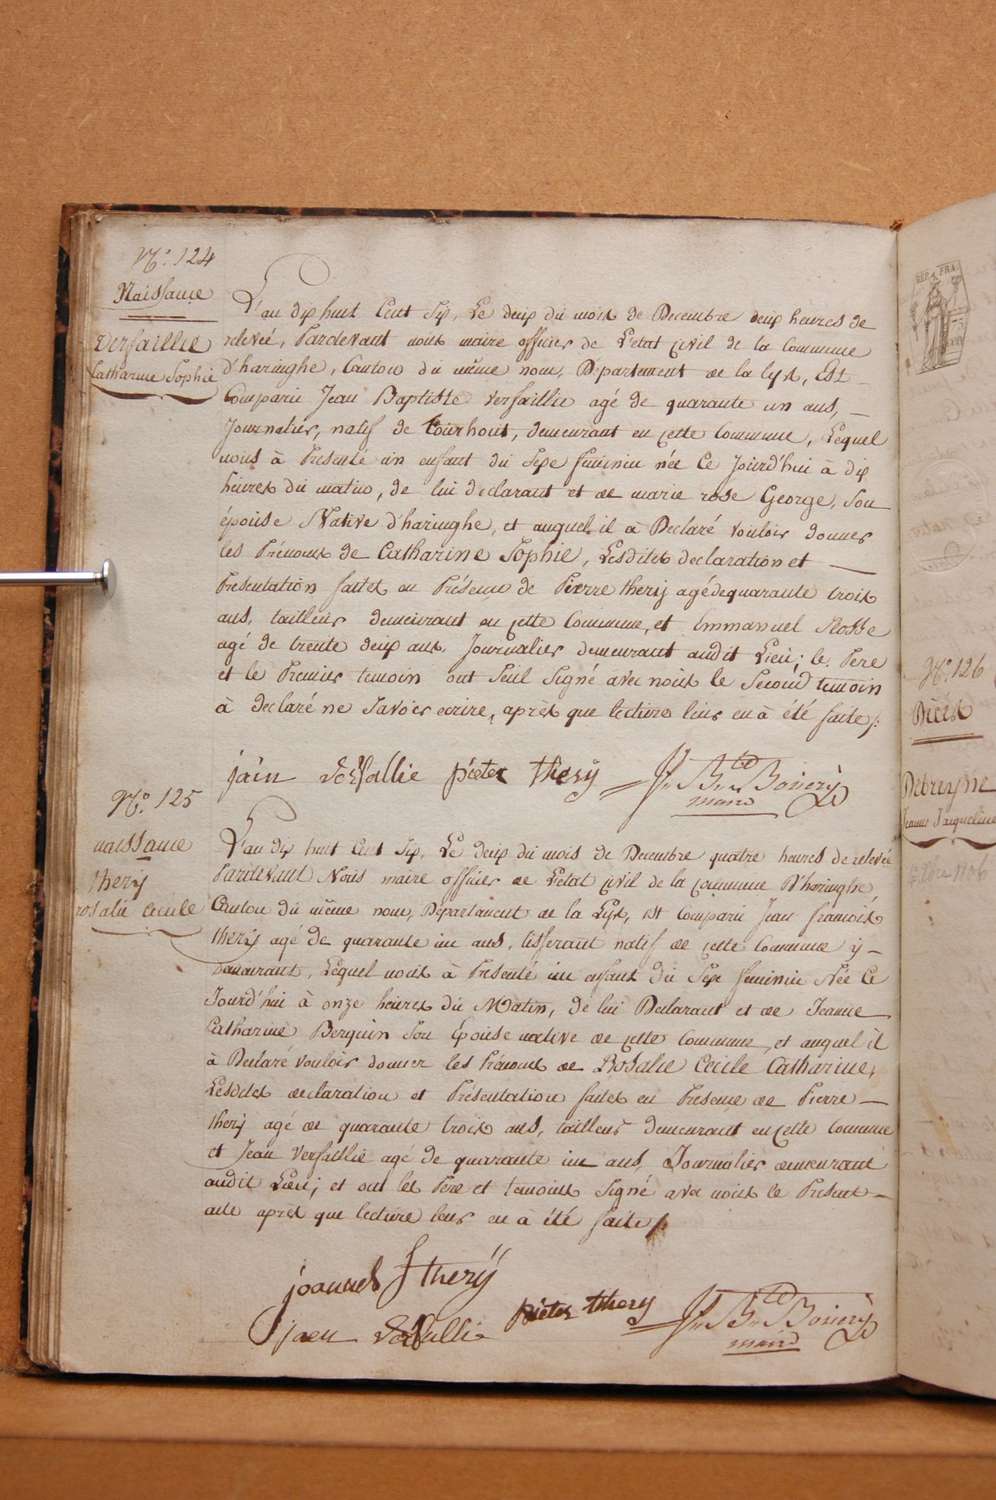 N.° 124
Naissance
Versaillie
Catharine Sophie
L'an dix huit Cent Six, Le deux du mois de Decembre deux heures de
relevée, Pardevant nous maire officier de L'etat civil de la Commune
d'haringhe, Canton du même nom, Département de la Lys, Est
Comparu Jean Baptiste Versaillie agé de quarante un ans, —
Journalier, natif de tourhout, demeurant en cette Commune, Lequel
nous à Presenté un enfant du Sexe feminin née Ce Jourd'hui à dix
heures du matin, de lui declarant et de marie rose George, Son
épouse Native d'haringhe, et auquel il à Declaré vouloir donner
les Prénoms de Catharine Sophie, Lesdites declaration et —
Presentation faites en Présence de Pierre thery agé de quarante trois
ans, tailleur demeurant en cette Commune, et Emmanuel Slosse
agé de trente deux ans, Journalier demeurant audit Lieu; le Pere
et le Premier temoin ont Seul Signé avec nous le Second temoin
à declaré ne Savoir ecrire, après que lecture leur en à été faite /.
jain versallie pieter thery J. B.te Boucry
maire
N.° 125
naissance
thery
rosalie cecile
L'an dix huit Cent Six, Le deux du mois de Decembre quatre heures de relevée
Pardevant Nous maire officier de L'etat civil de la commune D'haringhe
Canton du même nom, Département de la Lys, est Comparu Jean francois
thery agé de quarante un ans, tisserant natif de cette Commune y —
demeurant, Lequel nous à Presenté un enfant du Sexe feminin Née Ce
Jourd'hui à onze heures du Matin, de lui Declarant et de Jeanne
Catharine Berquin Son Epouse native de cette Commune, et auquel il
à Declaré vouloir donner les Prénoms de Rosalie Cecile Catharine,
Lesdites declaration et Présentation faites en Presence de Pierre —
thery agé de quarante trois ans, tailleur demeurant en cette Commune
et Jean Versaillie agé de quarante un ans, Journalier demeurant
audit Lieu; et ont les Pere et temoins Signé avec nous le Present —
acte après que lecture leur en à été faite /.
joannes f thery
jaen versalli pieter thery J. B.te Boucry
maire
REP. FRA.
N.° 126
Décès
Debruyne
Jeanne Jacqueline